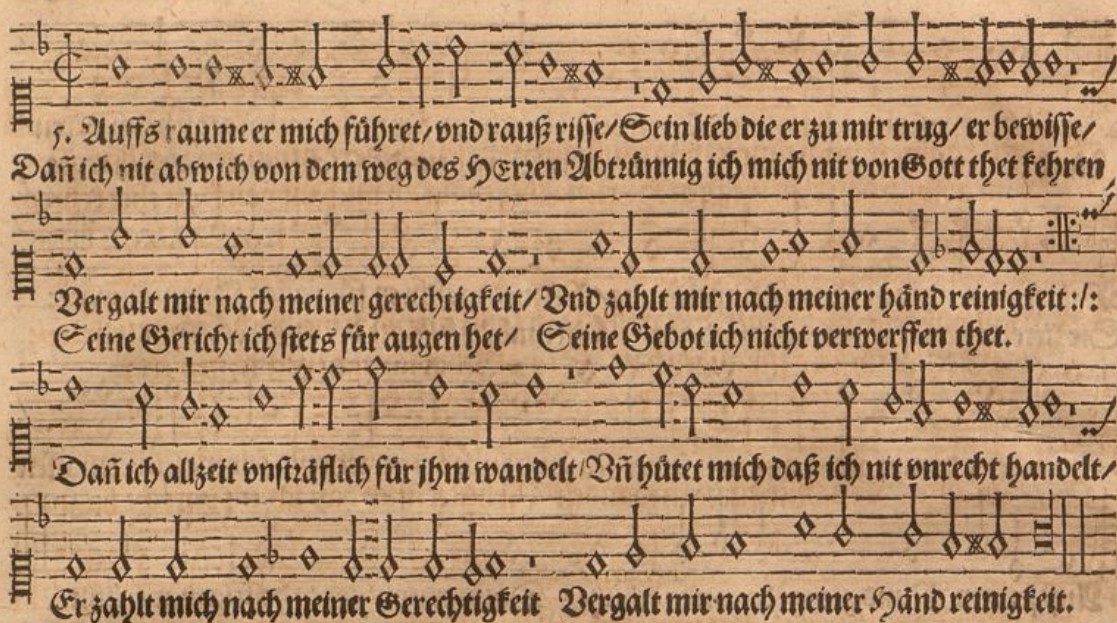 5. Auffs raume er mich führet/ vnd rauß risse/ Sein lieb die er zu mir trug/ er bewisse/
Dañ ich nit abwich von dem weg des HErren Abtrünnig ich mich nit von Gott thet kehren/
Vergalt mir nach meiner gerechtigkeit/ Vnd zahlt mir nach meiner händ reinigkeit :/:
Seine Gericht ich stets für augen het/ Seine Gebot ich nicht verwerffen thet.
Dañ ich allzeit vnsträflich für jhm wandelt/ Vñ hütet mich daß ich nit vnrecht handelt/
Er zahlt mich nach meiner Gerechtigkeit Vergalt mir nach meiner Händ reinigkeit.